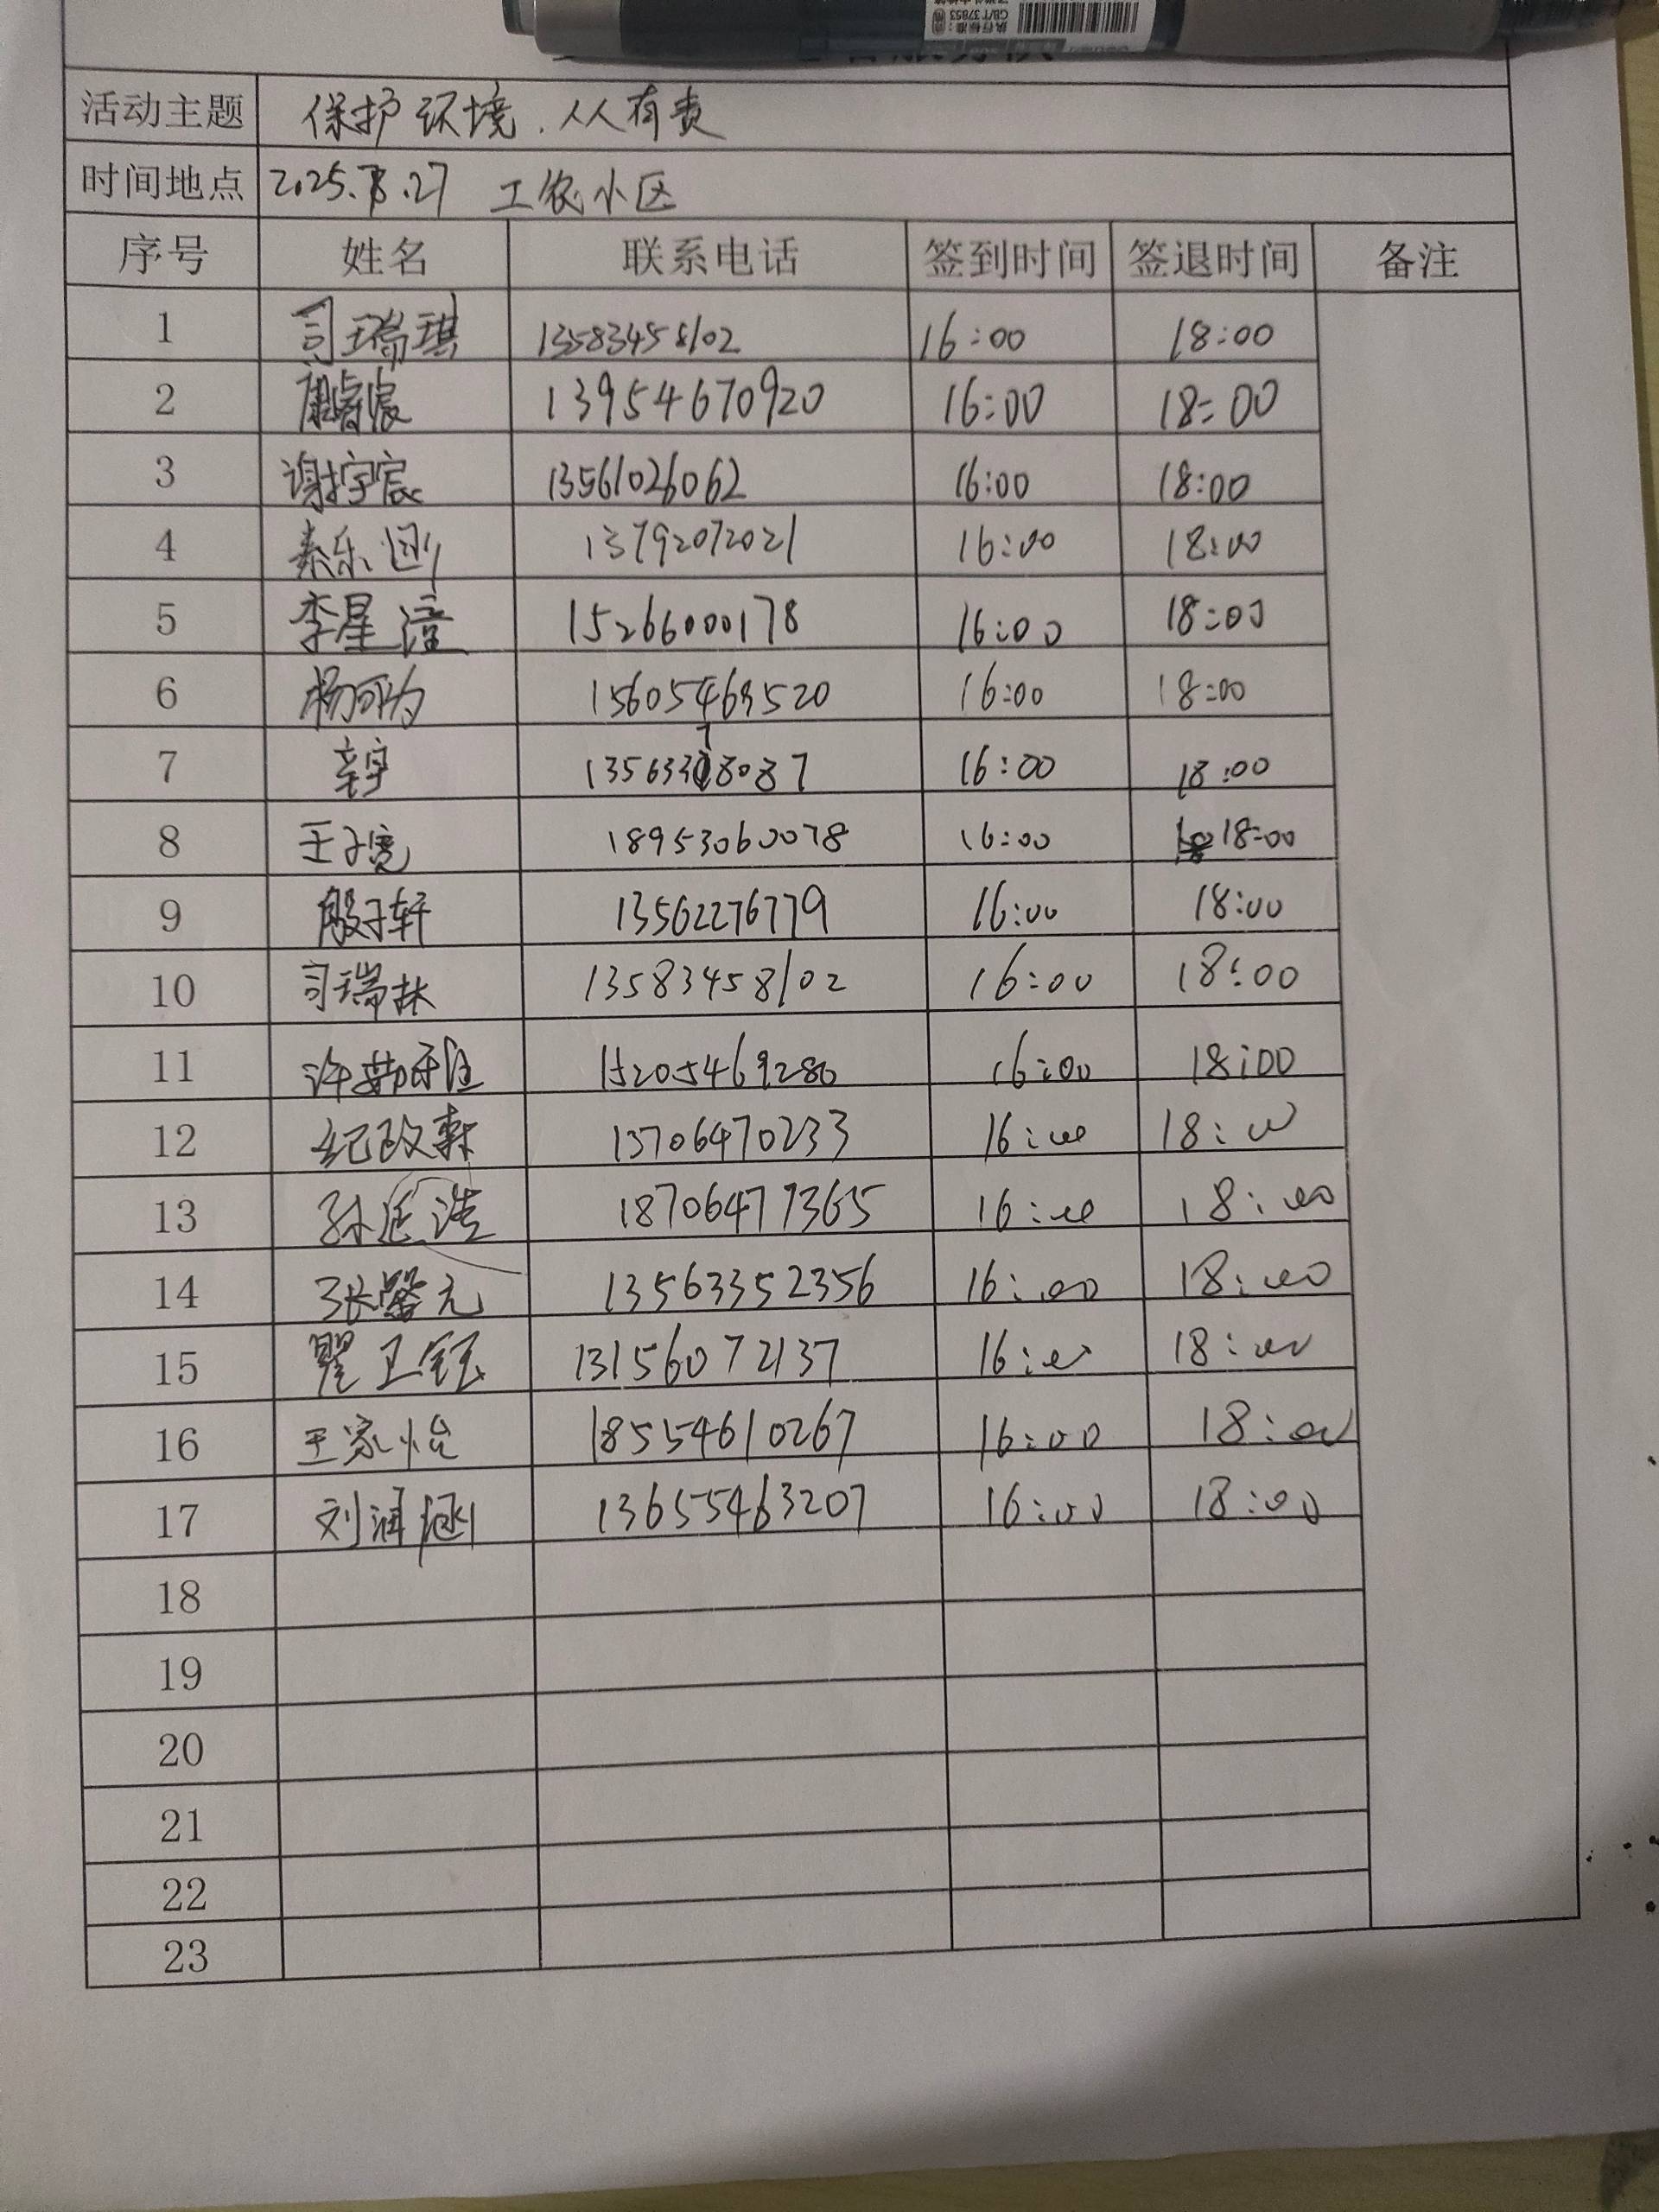 GB/T 37853
活动主题 保护环境.人人有责
时间地点 2025.8.27 工农小区
序号 姓名 联系电话 签到时间 签退时间 备注
1 司瑞琪 13583458102 16:00 18:00
2 13954670920 16:00 18:00
3 谢宇宸 13561026062 16:00 18:00
4 秦乐 13792072021 16:00 18:00
5 李星潼 15266000178 16:00 18:00
6 杨可为 15605469520 16:00 18:00
7 辛宇 16:00 18:00
8 王子宽 18953060078 16:00 18:00
9 殷子轩 13562276779 16:00 18:00
10 司瑞林 13583458102 16:00 18:00
11 许 15205469280 16:00 18:00
12 纪政 13706470233 16:00 18:00
13 孙廷浩 18706477365 16:00 18:00
14 张馨元 13563352356 16:00 18:00
15 瞿卫钰 13156072137 16:00 18:00
16 王家怡 18554610267 16:00 18:00
17 刘润涵 13655463207 16:00 18:00
18
19
20
21
22
23